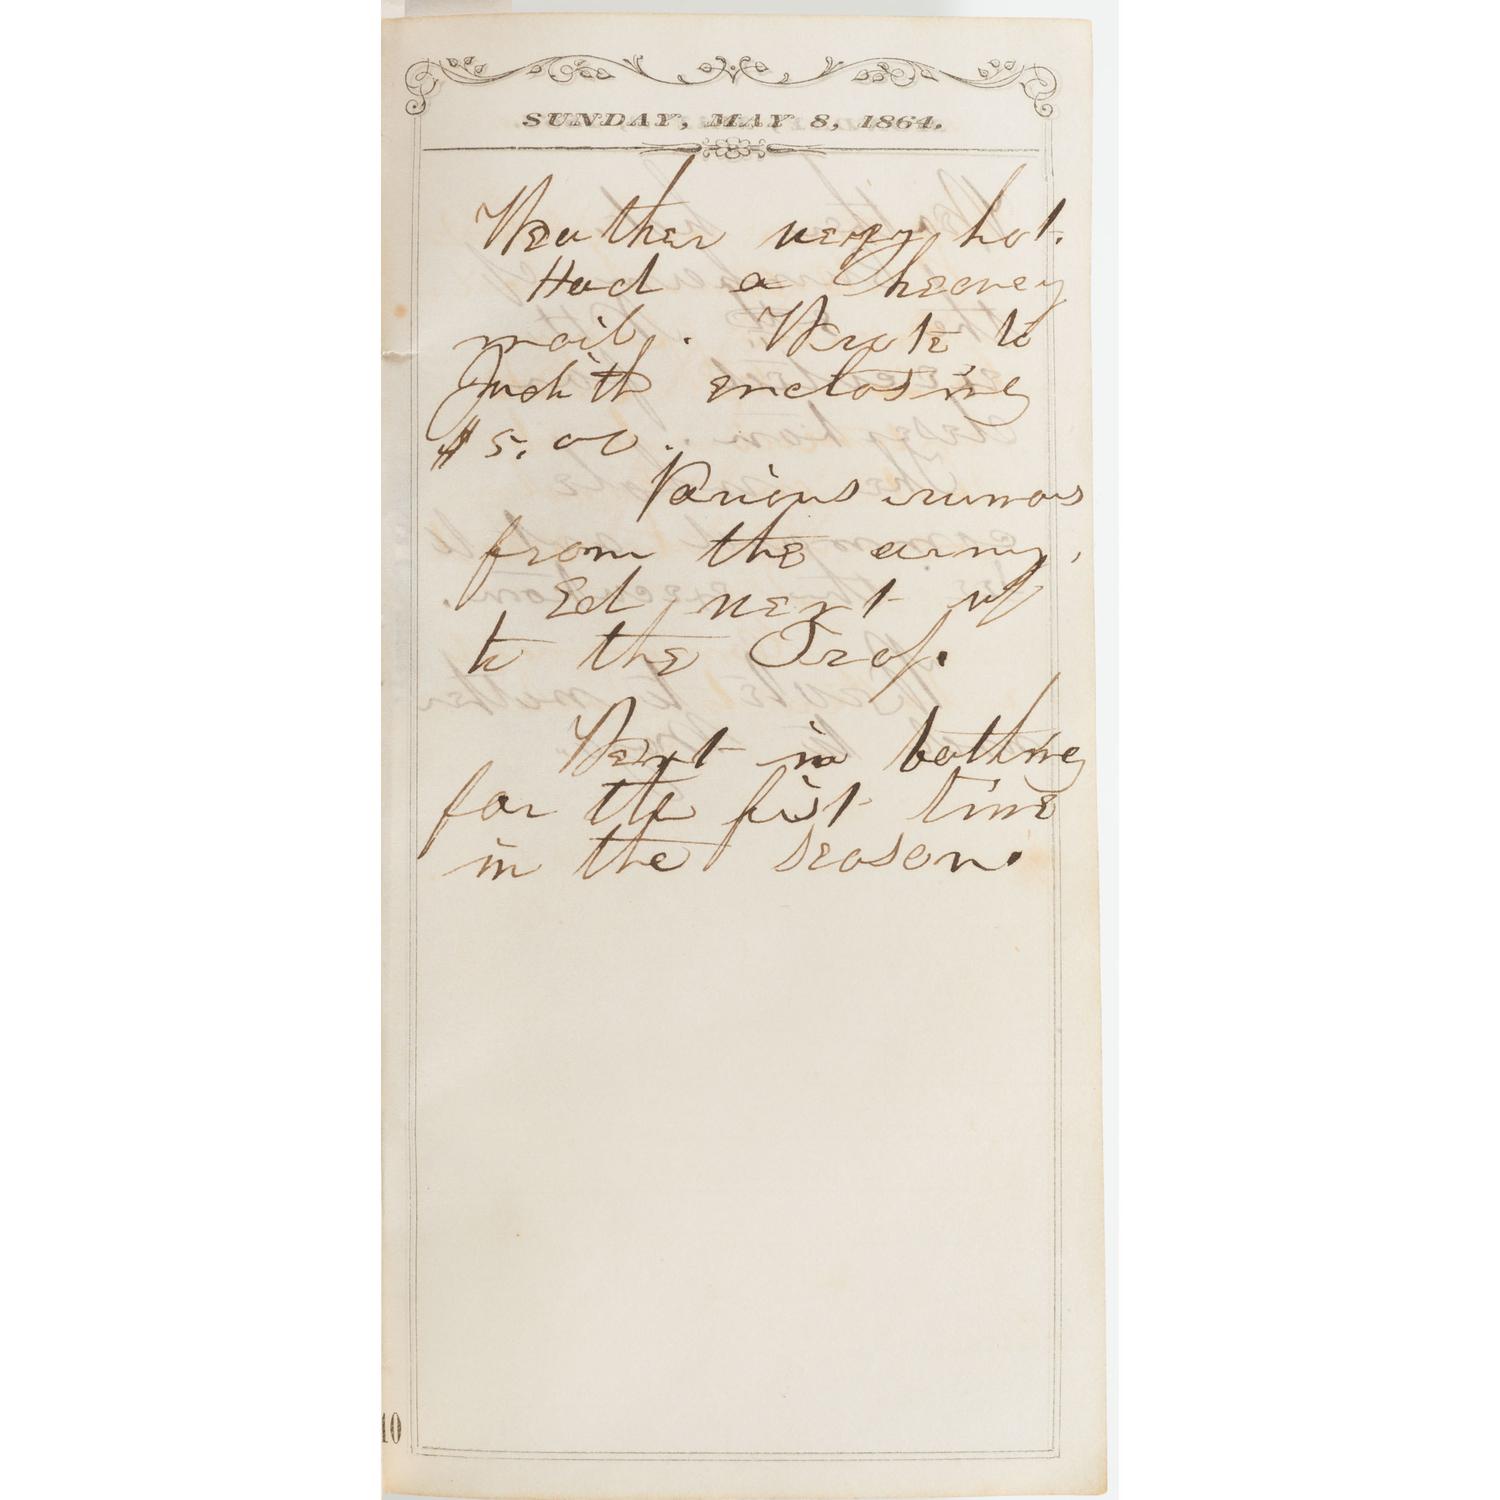 SUNDAY, MAY 8, 1864.
Weather very hot.
Had a heavey
mail. Wrote to
Judith enclosing
$5.00.
Various rumors
from the army,
Ed went up
to the Prof.
Went in bathing
for the first time
in the season.
10